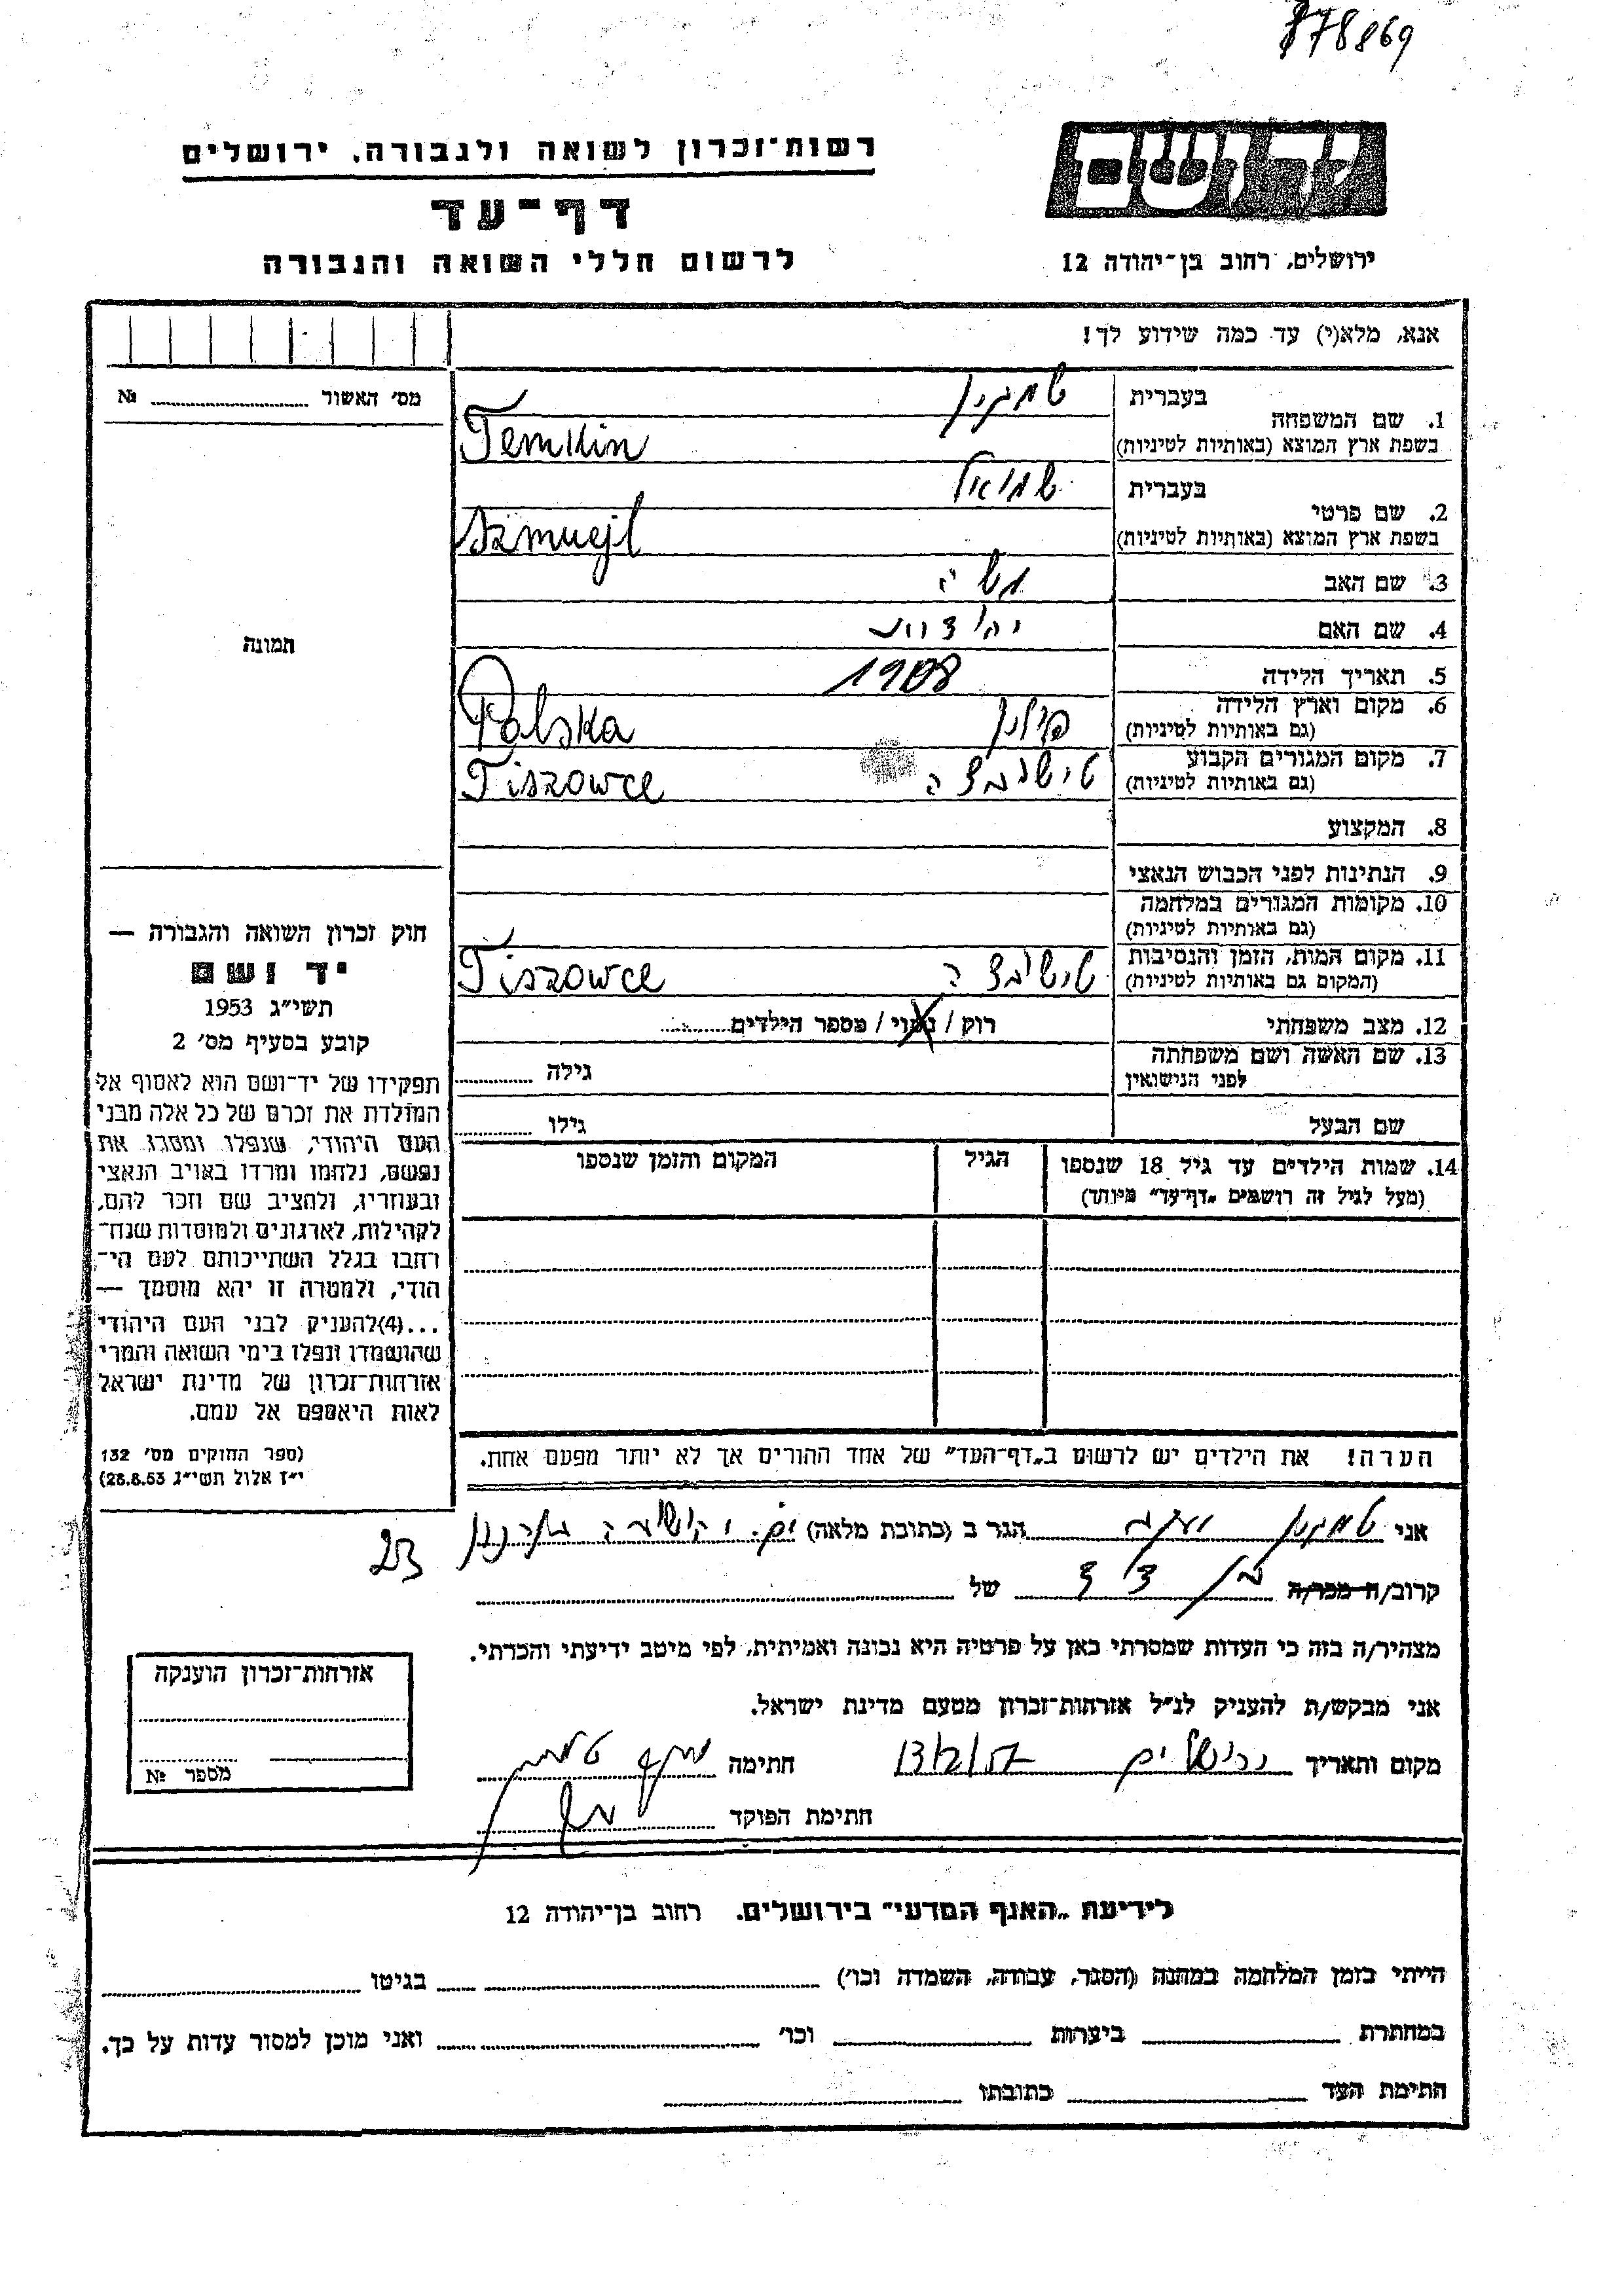 878869
יד ושם
רשות־זכרון לשואה ולגבורה, ירושלים
דף־עד
לרשום חללי השואה והגבורה
ירושלים, רחוב בן־יהודה 12
אנא, מלא(י) עד כמה שידוע לך!
מס' האשור № 
תמונה
חוק זכרון השואה והגבורה —
יד ושם
תשי״ג 1953
קובע בסעיף מס' 2
תפקידו של יד־ושם הוא לאסוף אל
המולדת את זכרם של כל אלה מבני
העם היהודי, שנפלו ומסרו את
נפשם, נלחמו ומרדו באויב הנאצי
ובעוזריו, ולהציב שם וזכר להם,
לקהילות, לארגונים ולמוסדות שנח־
רבו בגלל השתייכותם לעם הי־
הודי, ולמטרה זו יהא מוסמך —
...(4)להעניק לבני העם היהודי
שהושמדו ונפלו בימי השואה והמרי
אזרחות־זכרון של מדינת ישראל
לאות היאספם אל עמם.
(ספר החוקים מס' 132
י״ז אלול תשי״ג 28.8.53)
1. שם המשפחה בעברית טמקין
בשפת ארץ המוצא (באותיות לטיניות) Temkin
2. שם פרטי בעברית שמואל
בשפת ארץ המוצא (באותיות לטיניות) Szmuejl
3. שם האב משה
4. שם האם
5. תאריך הלידה 1908
6. מקום וארץ הלידה (גם באותיות לטיניות) פולין Polska
7. מקום המגורים הקבוע (גם באותיות לטיניות) טישובצה Tiszowce
8. המקצוע
9. הנתינות לפני הכבוש הנאצי
10. מקומות המגורים במלחמה (גם באותיות לטיניות)
11. מקום המות, הזמן והנסיבות (המקום גם באותיות לטיניות) טישובצה Tiszowce
12. מצב משפחתי רוק / נשוי / מספר הילדים
13. שם האשה ושם משפחתה לפני הנישואין גילה
שם הבעל גילו
14. שמות הילדים עד גיל 18 שנספו הגיל המקום והזמן שנספו
(מעל לגיל זה רושמים „דף־עד" מיוחד)
הערה! את הילדים יש לרשום ב„דף־העד" של אחד ההורים אך לא יותר מפעם אחת.
אני טמקין יעקב הגר ב (כתובת מלאה)
23
קרוב/ה מכר/ה בן דוד של
מצהיר/ה בזה כי העדות שמסרתי כאן על פרטיה היא נכונה ואמיתית, לפי מיטב ידיעתי והכרתי.
אני מבקש/ת להעניק לנ״ל אזרחות־זכרון מטעם מדינת ישראל.
מקום ותאריך ירושלים 13/2/57 חתימה
חתימת הפוקד
אזרחות־זכרון הוענקה
מספר №
לידיעת „האגף המדעי" בירושלים, רחוב בן־יהודה 12
הייתי בזמן המלחמה במחנה (הסגר, עבודה, השמדה וכו') בגיטו
במחתרת ביערות וכו' ואני מוכן למסור עדות על כך.
חתימת העד כתובתו